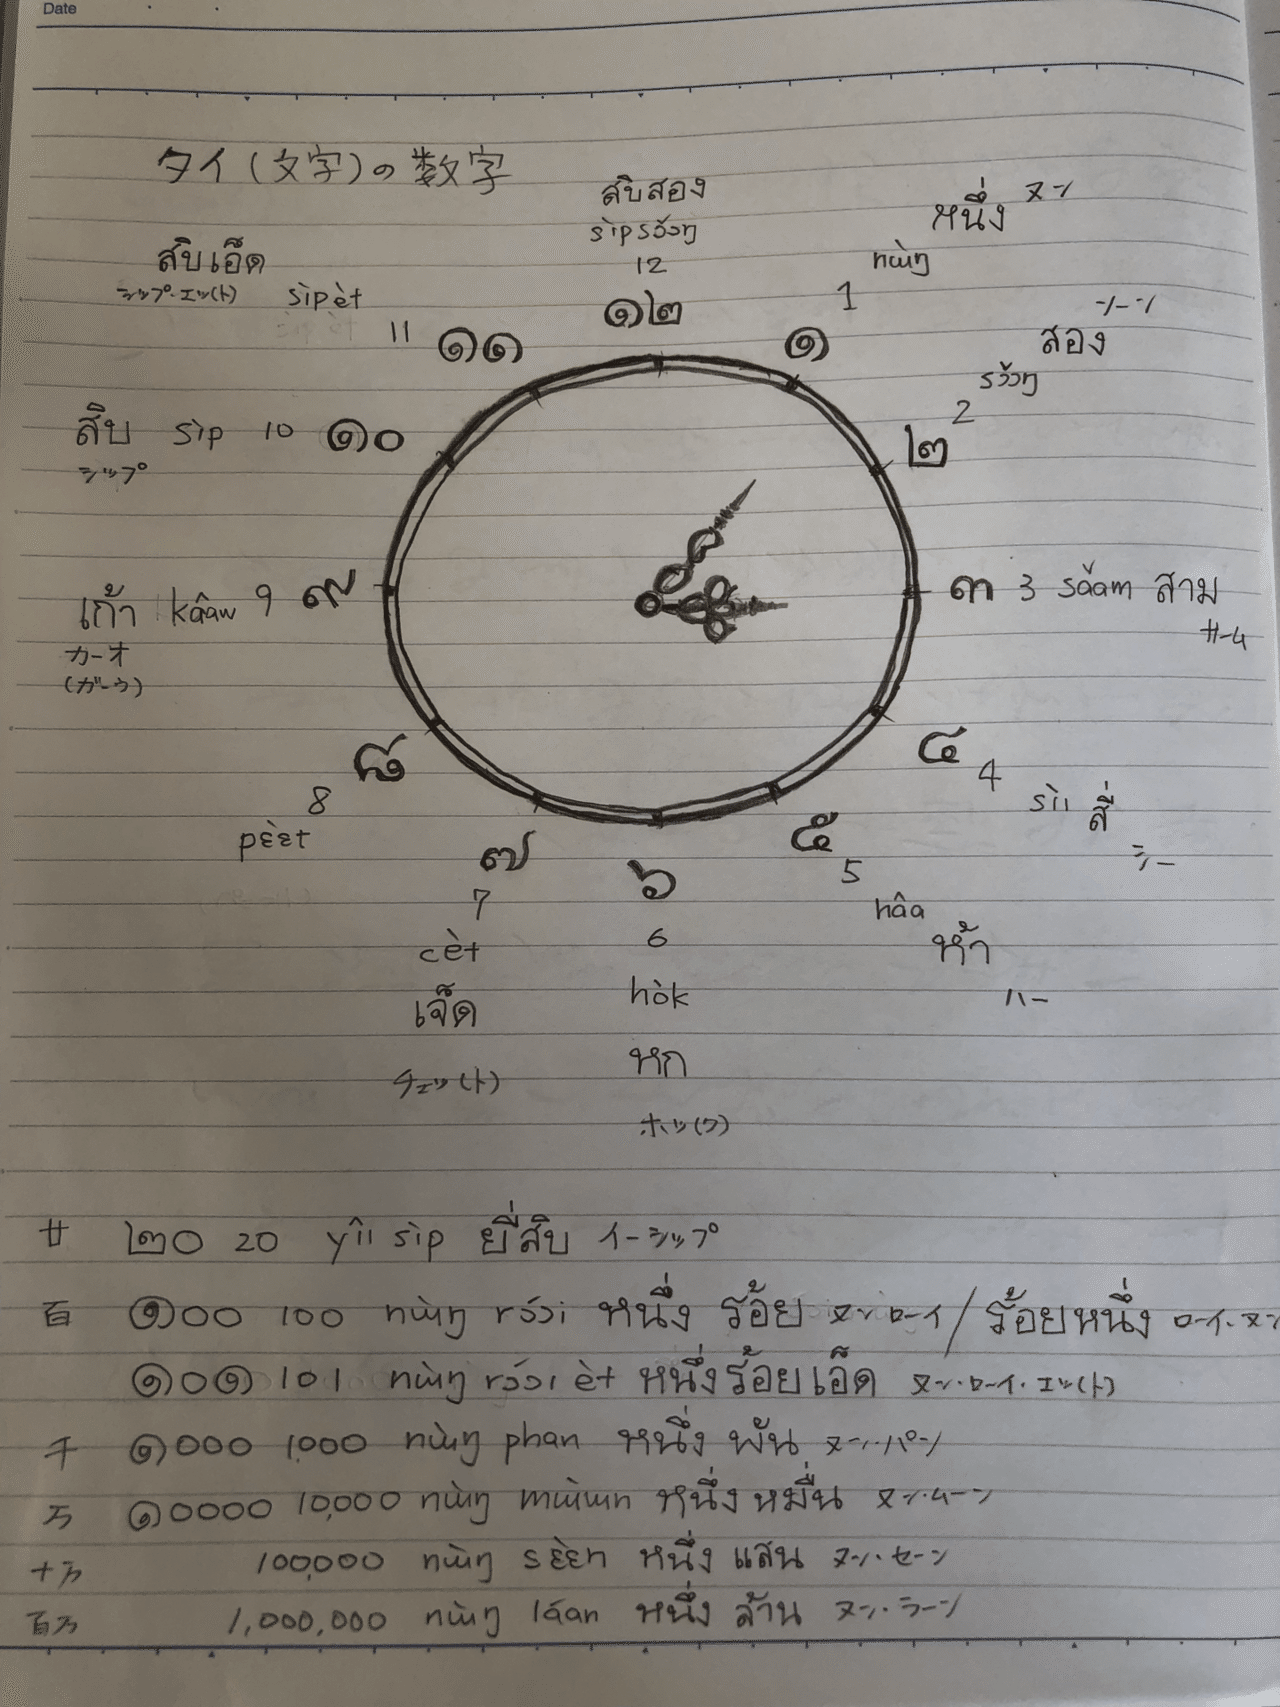 Date
タイ(文字)の数字
สิบสอง
sìpsɔ̌ɔŋ
12
๑๒
หนึ่ง ヌン
nɯ̀ŋ
1
๑
ソーン
สอง
sɔ̌ɔŋ
2
๒
๓ 3 sǎam สาม
サーム
๔ 4 sìi สี่
シー
๕ 5
hâa
ห้า
ハー
๖
6
hòk
หก
ホッ(ク)
๗
7
cèt
เจ็ด
チェッ(ト)
๘
8
pɛ̀ɛt
เก้า kâaw 9 ๙
カーオ
(ガーウ)
สิบ sìp 10 ๑๐
シップ
สิบเอ็ด
シップ・エッ(ト) sìpèt
11 ๑๑
廿 ๒๐ 20 yîi sìp ยี่สิบ イーシップ
百 ๑๐๐ 100 nɯ̀ŋ rɔ́ɔi หนึ่ง ร้อย ヌン ローイ / ร้อยหนึ่ง ローイ・ヌン
๑๐๑ 101 nɯ̀ŋ rɔ́ɔi èt หนึ่งร้อยเอ็ด ヌン・ローイ・エッ(ト)
千 ๑๐๐๐ 1,000 nɯ̀ŋ phan หนึ่ง พัน ヌン・パン
万 ๑๐๐๐๐ 10,000 nɯ̀ŋ mɯ̀ɯn หนึ่ง หมื่น ヌン・ムーン
十万 100,000 nɯ̀ŋ sɛ̌ɛn หนึ่ง แสน ヌン・セーン
百万 1,000,000 nɯ̀ŋ láan หนึ่ง ล้าน ヌン・ラーン